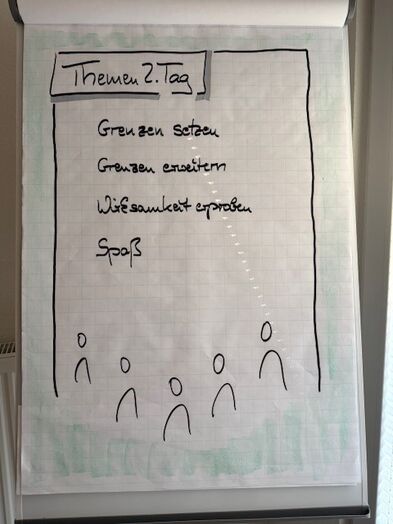 Themen 2. Tag
Grenzen setzen
Grenzen erweitern
Wirksamkeit erproben
Spaß